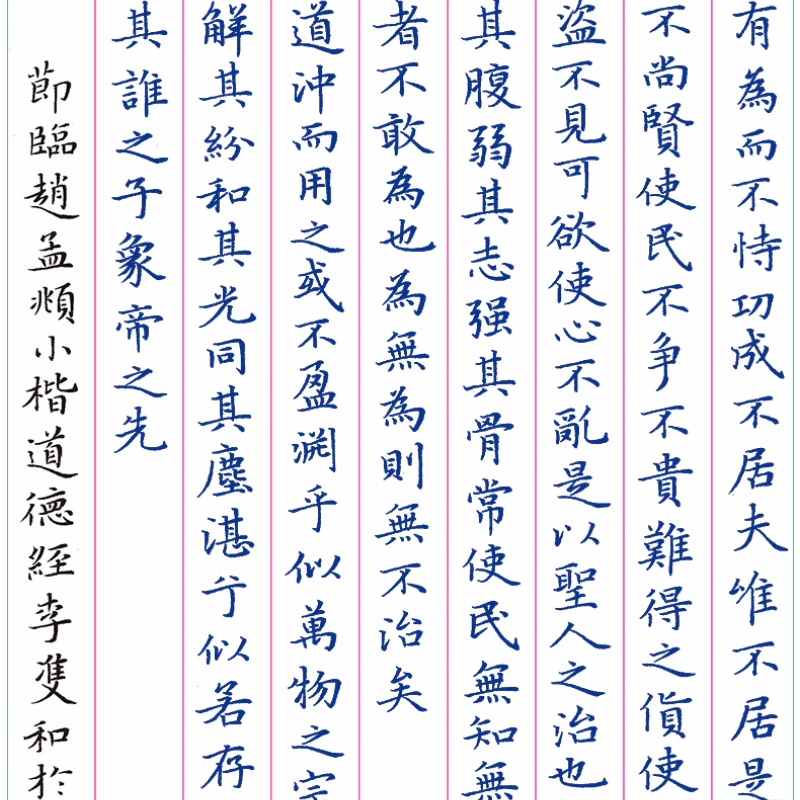 有為而不恃功成不居夫唯不居是
不尚賢使民不争不貴難得之貨使
盗不見可欲使心不亂是以聖人之治也
其腹弱其志强其骨常使民無知無
者不敢為也為無為則無不治矣
道沖而用之或不盈淵乎似萬物之宗
解其紛和其光同其塵湛兮似若存
其誰之子象帝之先
節臨趙孟頫小楷道德經李隻和於